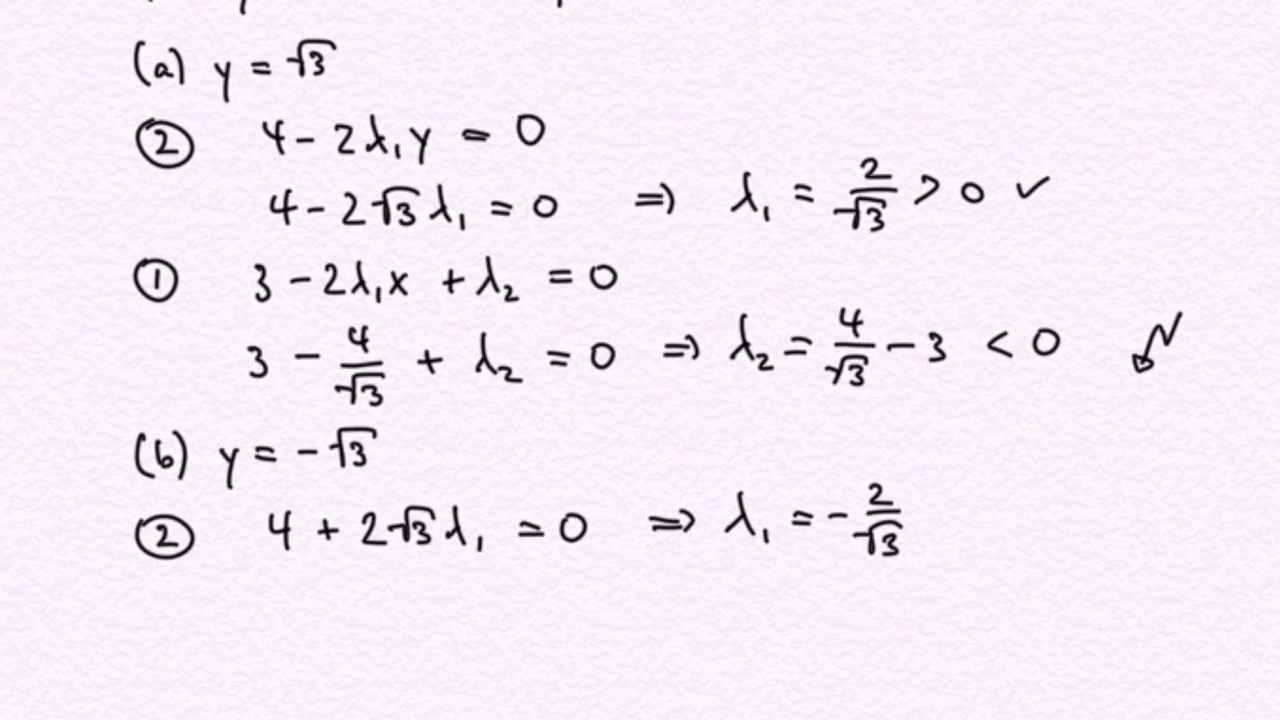 (a) y = √3
② 4 - 2λ₁y = 0
4 - 2√3 λ₁ = 0 ⇒ λ₁ = 2/√3 > 0 ✓
① 3 - 2λ₁x + λ₂ = 0
3 - 4/√3 + λ₂ = 0 ⇒ λ₂ = 4/√3 - 3 < 0 ↯
(b) y = -√3
② 4 + 2√3 λ₁ = 0 ⇒ λ₁ = - 2/√3